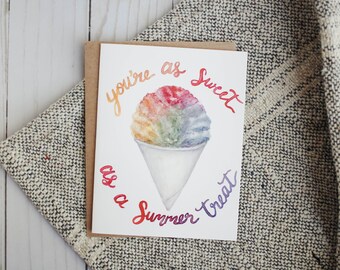 you're as sweet
as a Summer treat